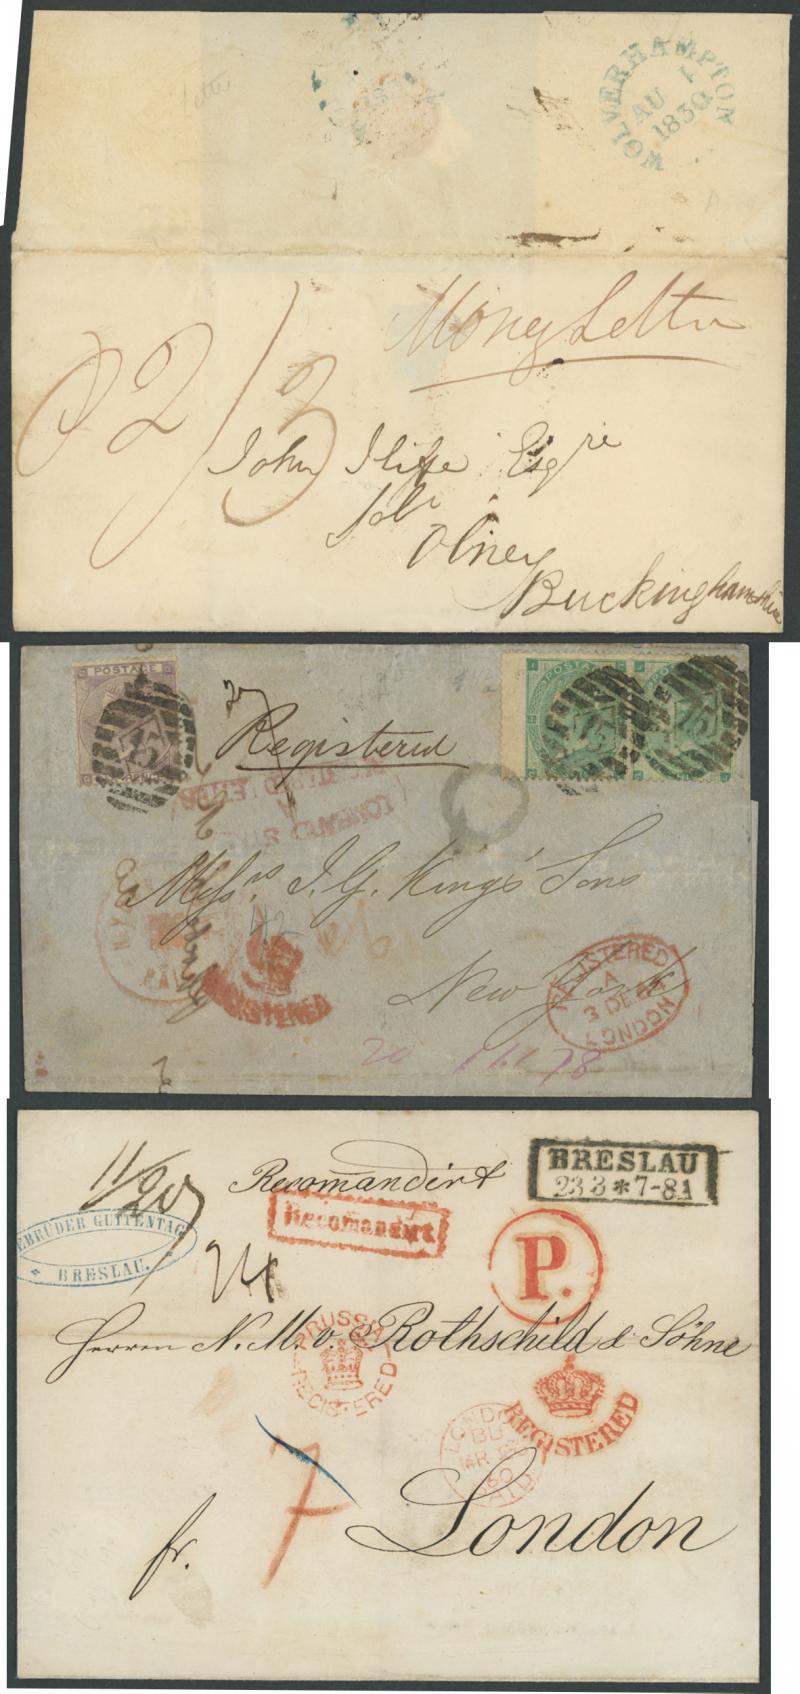 letter
WOLVERHAMPTON
AU 1
1830
Money Letter
P 2/3
John Iliffe Esqre
Solr
Olney
Buckinghamshire
POSTAGE
15
Registered
POSTAGE
15
15
LOMBARD ST
A
REGISTERED LETTER
Messrs J. G. King's Sons
42
New York
REGISTERED
REGISTERED
A
3 DE 64
LONDON
20
BRESLAU
23 3 * 7-8A
11/20
Recomandirt
Recomandirt
GEBRÜDER GUTTENTAG
BRESLAU.
P.
Herren N. M. v. Rothschild & Söhne
PRUSSIA
REGISTERED
REGISTERED
LONDON
BU
MR 26
60
PAID
7
London
fr.